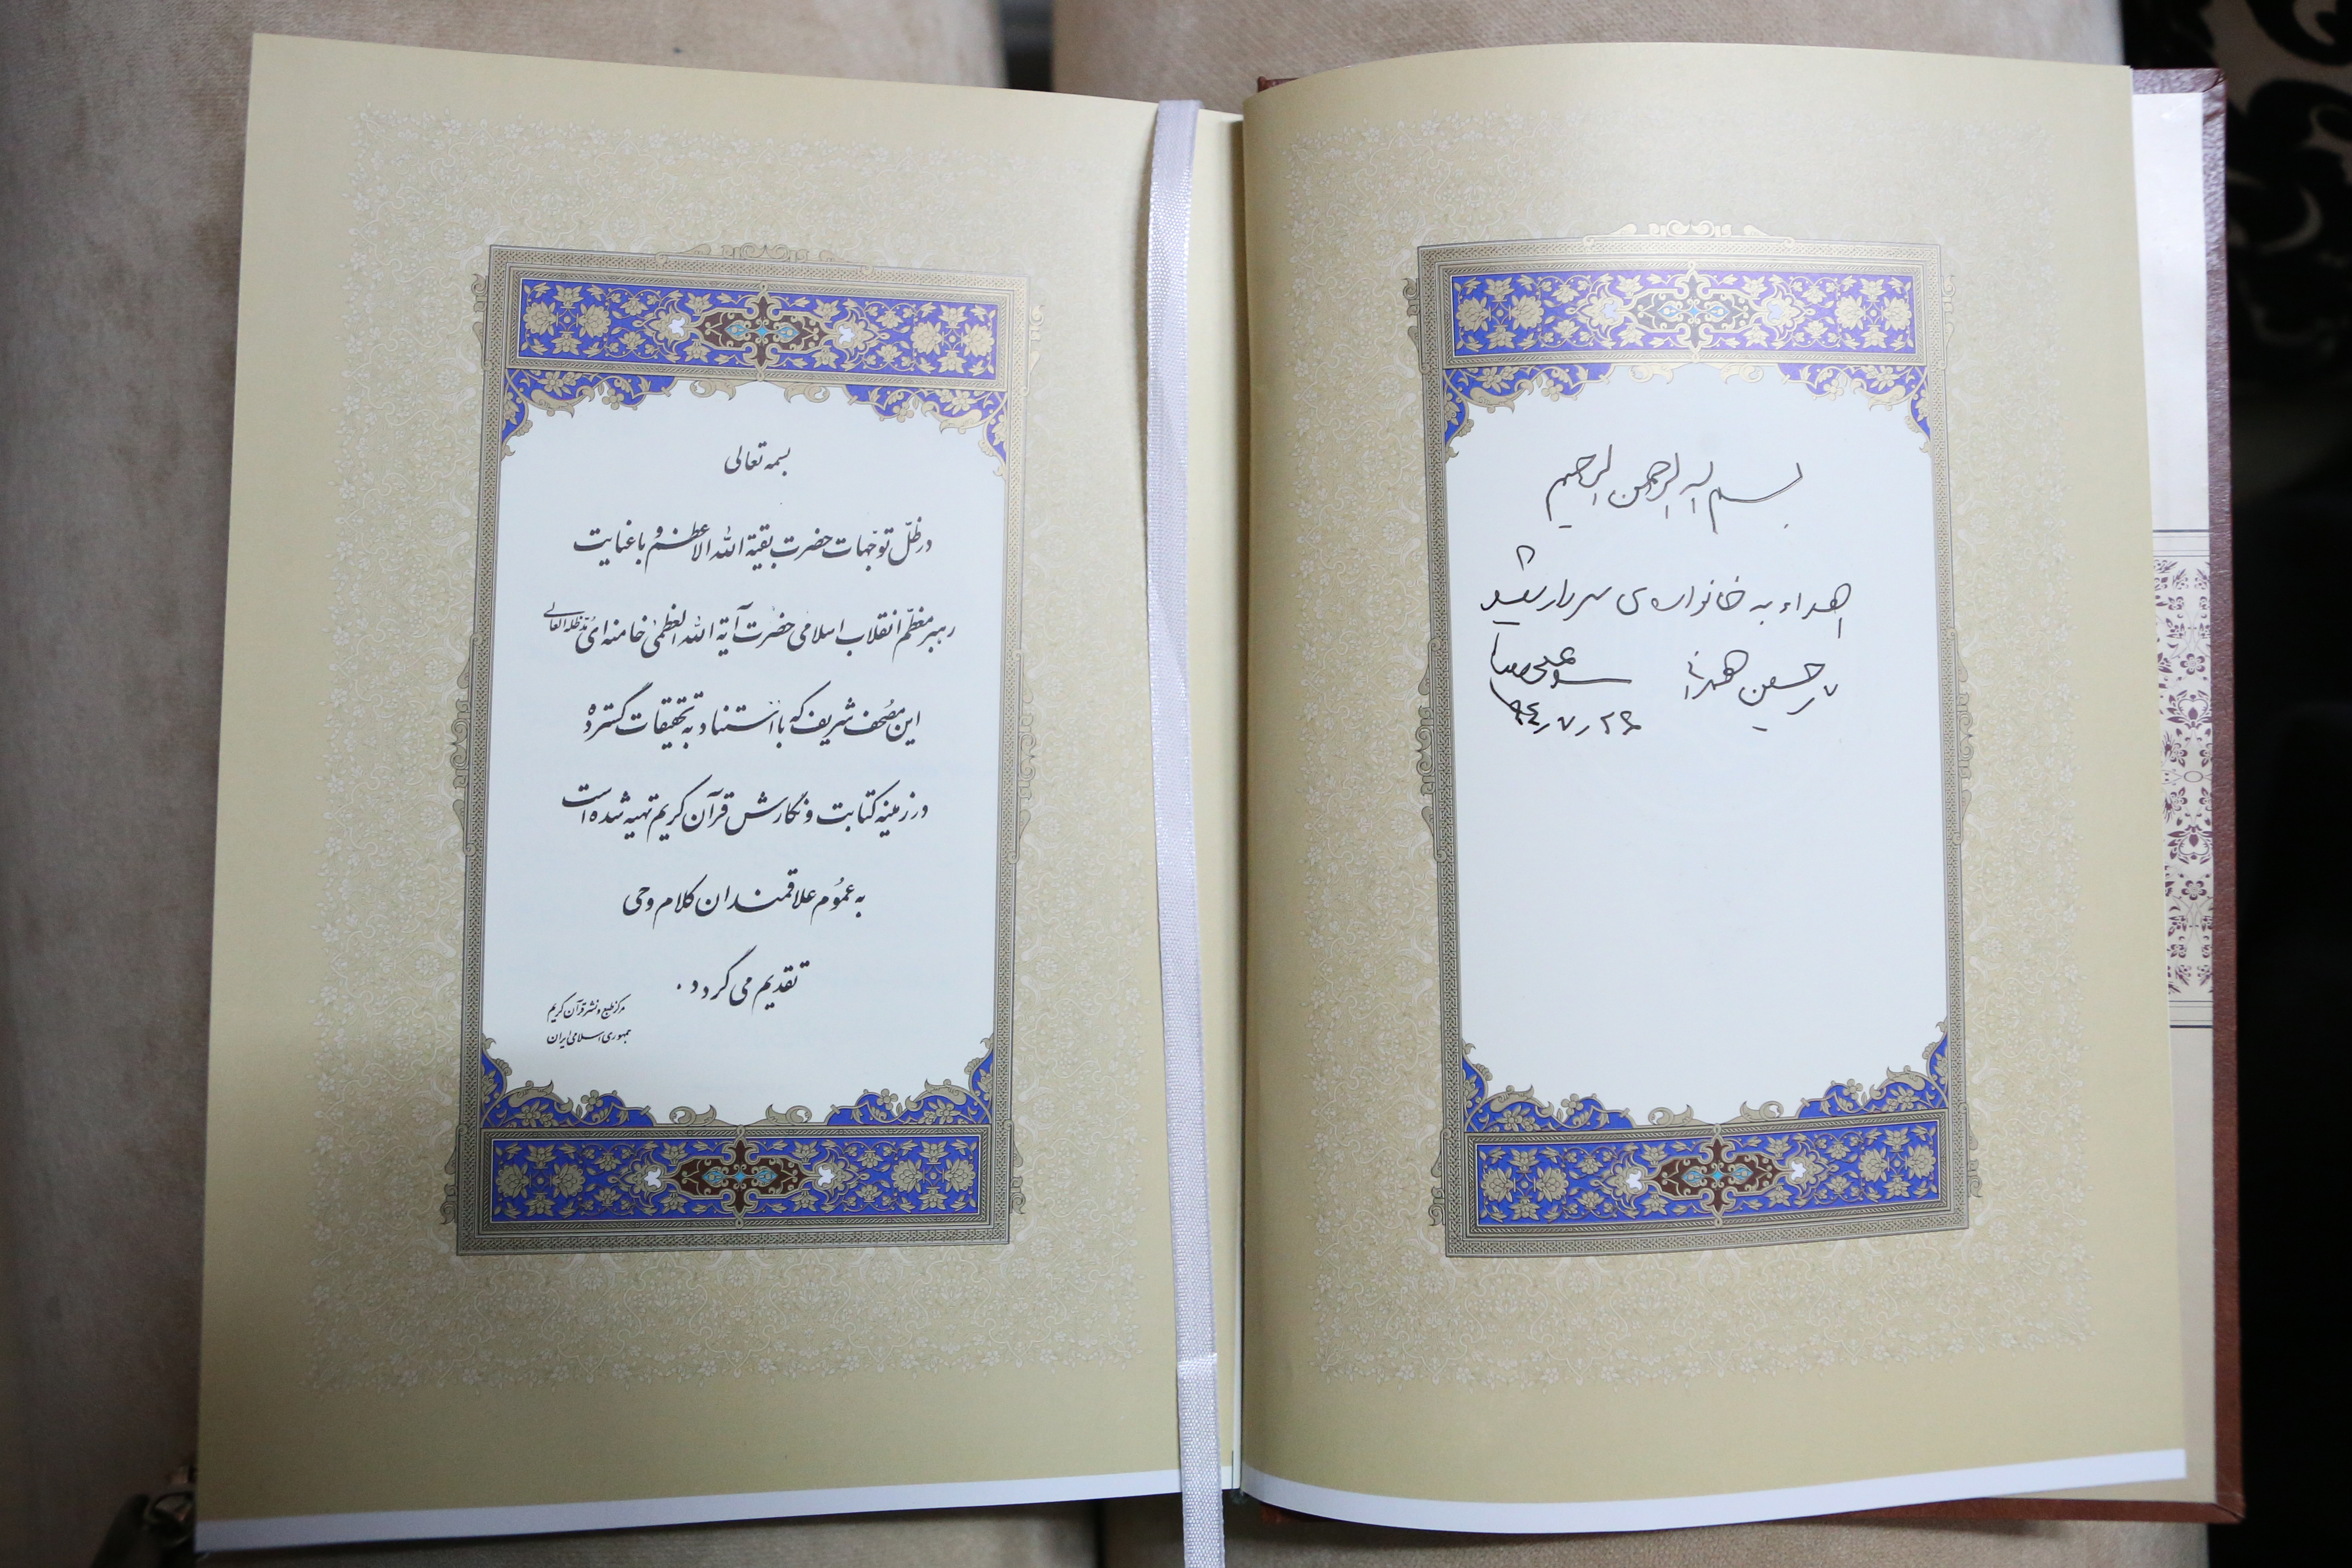 بسم الله الرحمن الرحیم
اهداء به خانواده‌ی سردار شهید
حسین همدانی
سید علی خامنه‌ای
۹۴٫۷٫۲۶
بسمه تعالی
در ظلّ توجّهات حضرت بقیة الله الاعظم و با عنایت
رهبر معظّم انقلاب اسلامی حضرت آیة الله العظمیٰ خامنه‌ای مدّ ظله العالی
این مصحف شریف که با استناد به تحقیقات گسترده
در زمینه کتابت و نگارش قرآن کریم تهیه شده است
به عموم علاقمندان کلام وحی
تقدیم می گردد .
مرکز طبع و نشر قرآن کریم
جمهوری اسلامی ایران